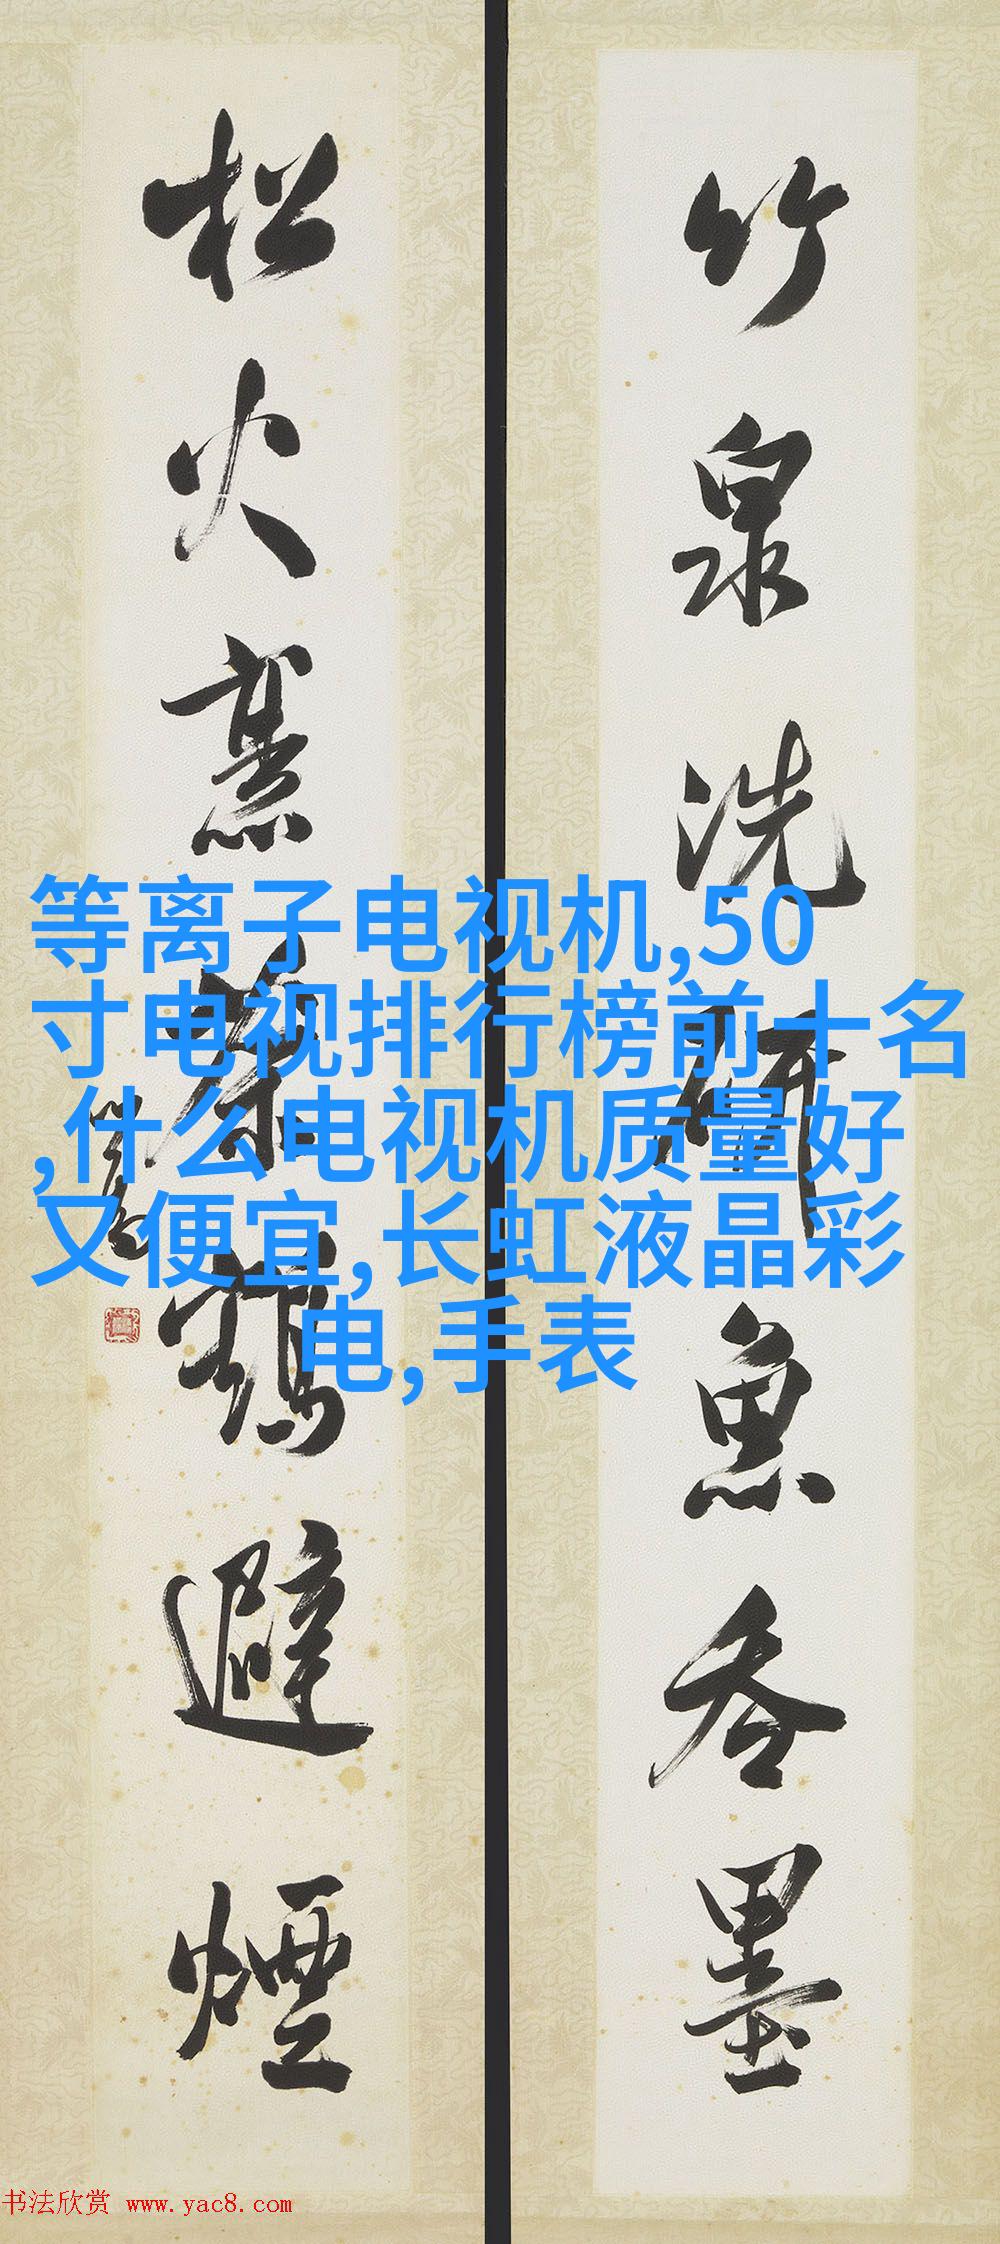 竹泉洗研魚吞墨
松火烹茶鶴避煙
等离子电视机,50
寸电视排行榜前十名
,什么电视机质量好
又便宜,长虹液晶彩
电,手表
书法欣赏 www.yac8.com